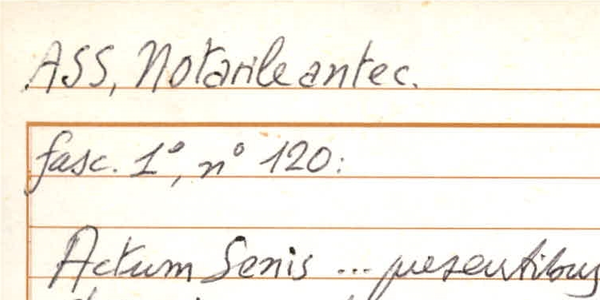 ASS, Notarile antec.
fasc. 1°, n° 120:
Actum Senis ... presentibus